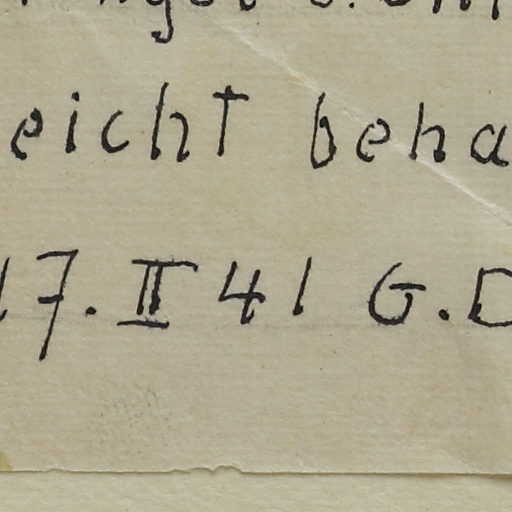 eicht beha
17. II 41 G.D